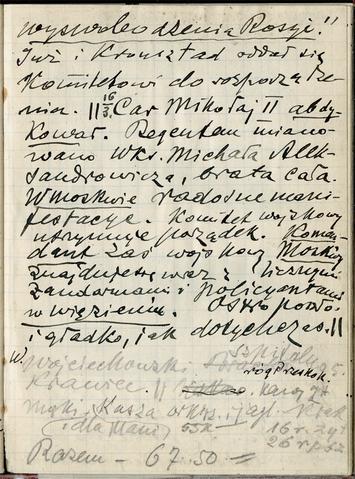 wyswobodzenia Rosyi."
Już i Kronsztad oddał się
Komitetowi do rozporządze-
nia. || 16/3. Car Mikołaj II abdy-
kował. Regentem miano-
wano W.Ks. Michała Alek-
sandrowicza, brata cara.
W Moskwie radosne mani-
festacye. Komitet wojskowy
utrzymuje porządek. Komen-
dant zaś wojskowy Moskwy
znajduje się wraz z licznymi
żandarmami i policyantami
w więzieniu. poszło
i gładko, jak dotychczas. ||
W. Wojciechowski. Szpitalna 5.
róg Przeskok.
Krawiec ||
mąki. Kasza i jagl.
(dla Mani) 55 k
Razem – 67.50 =